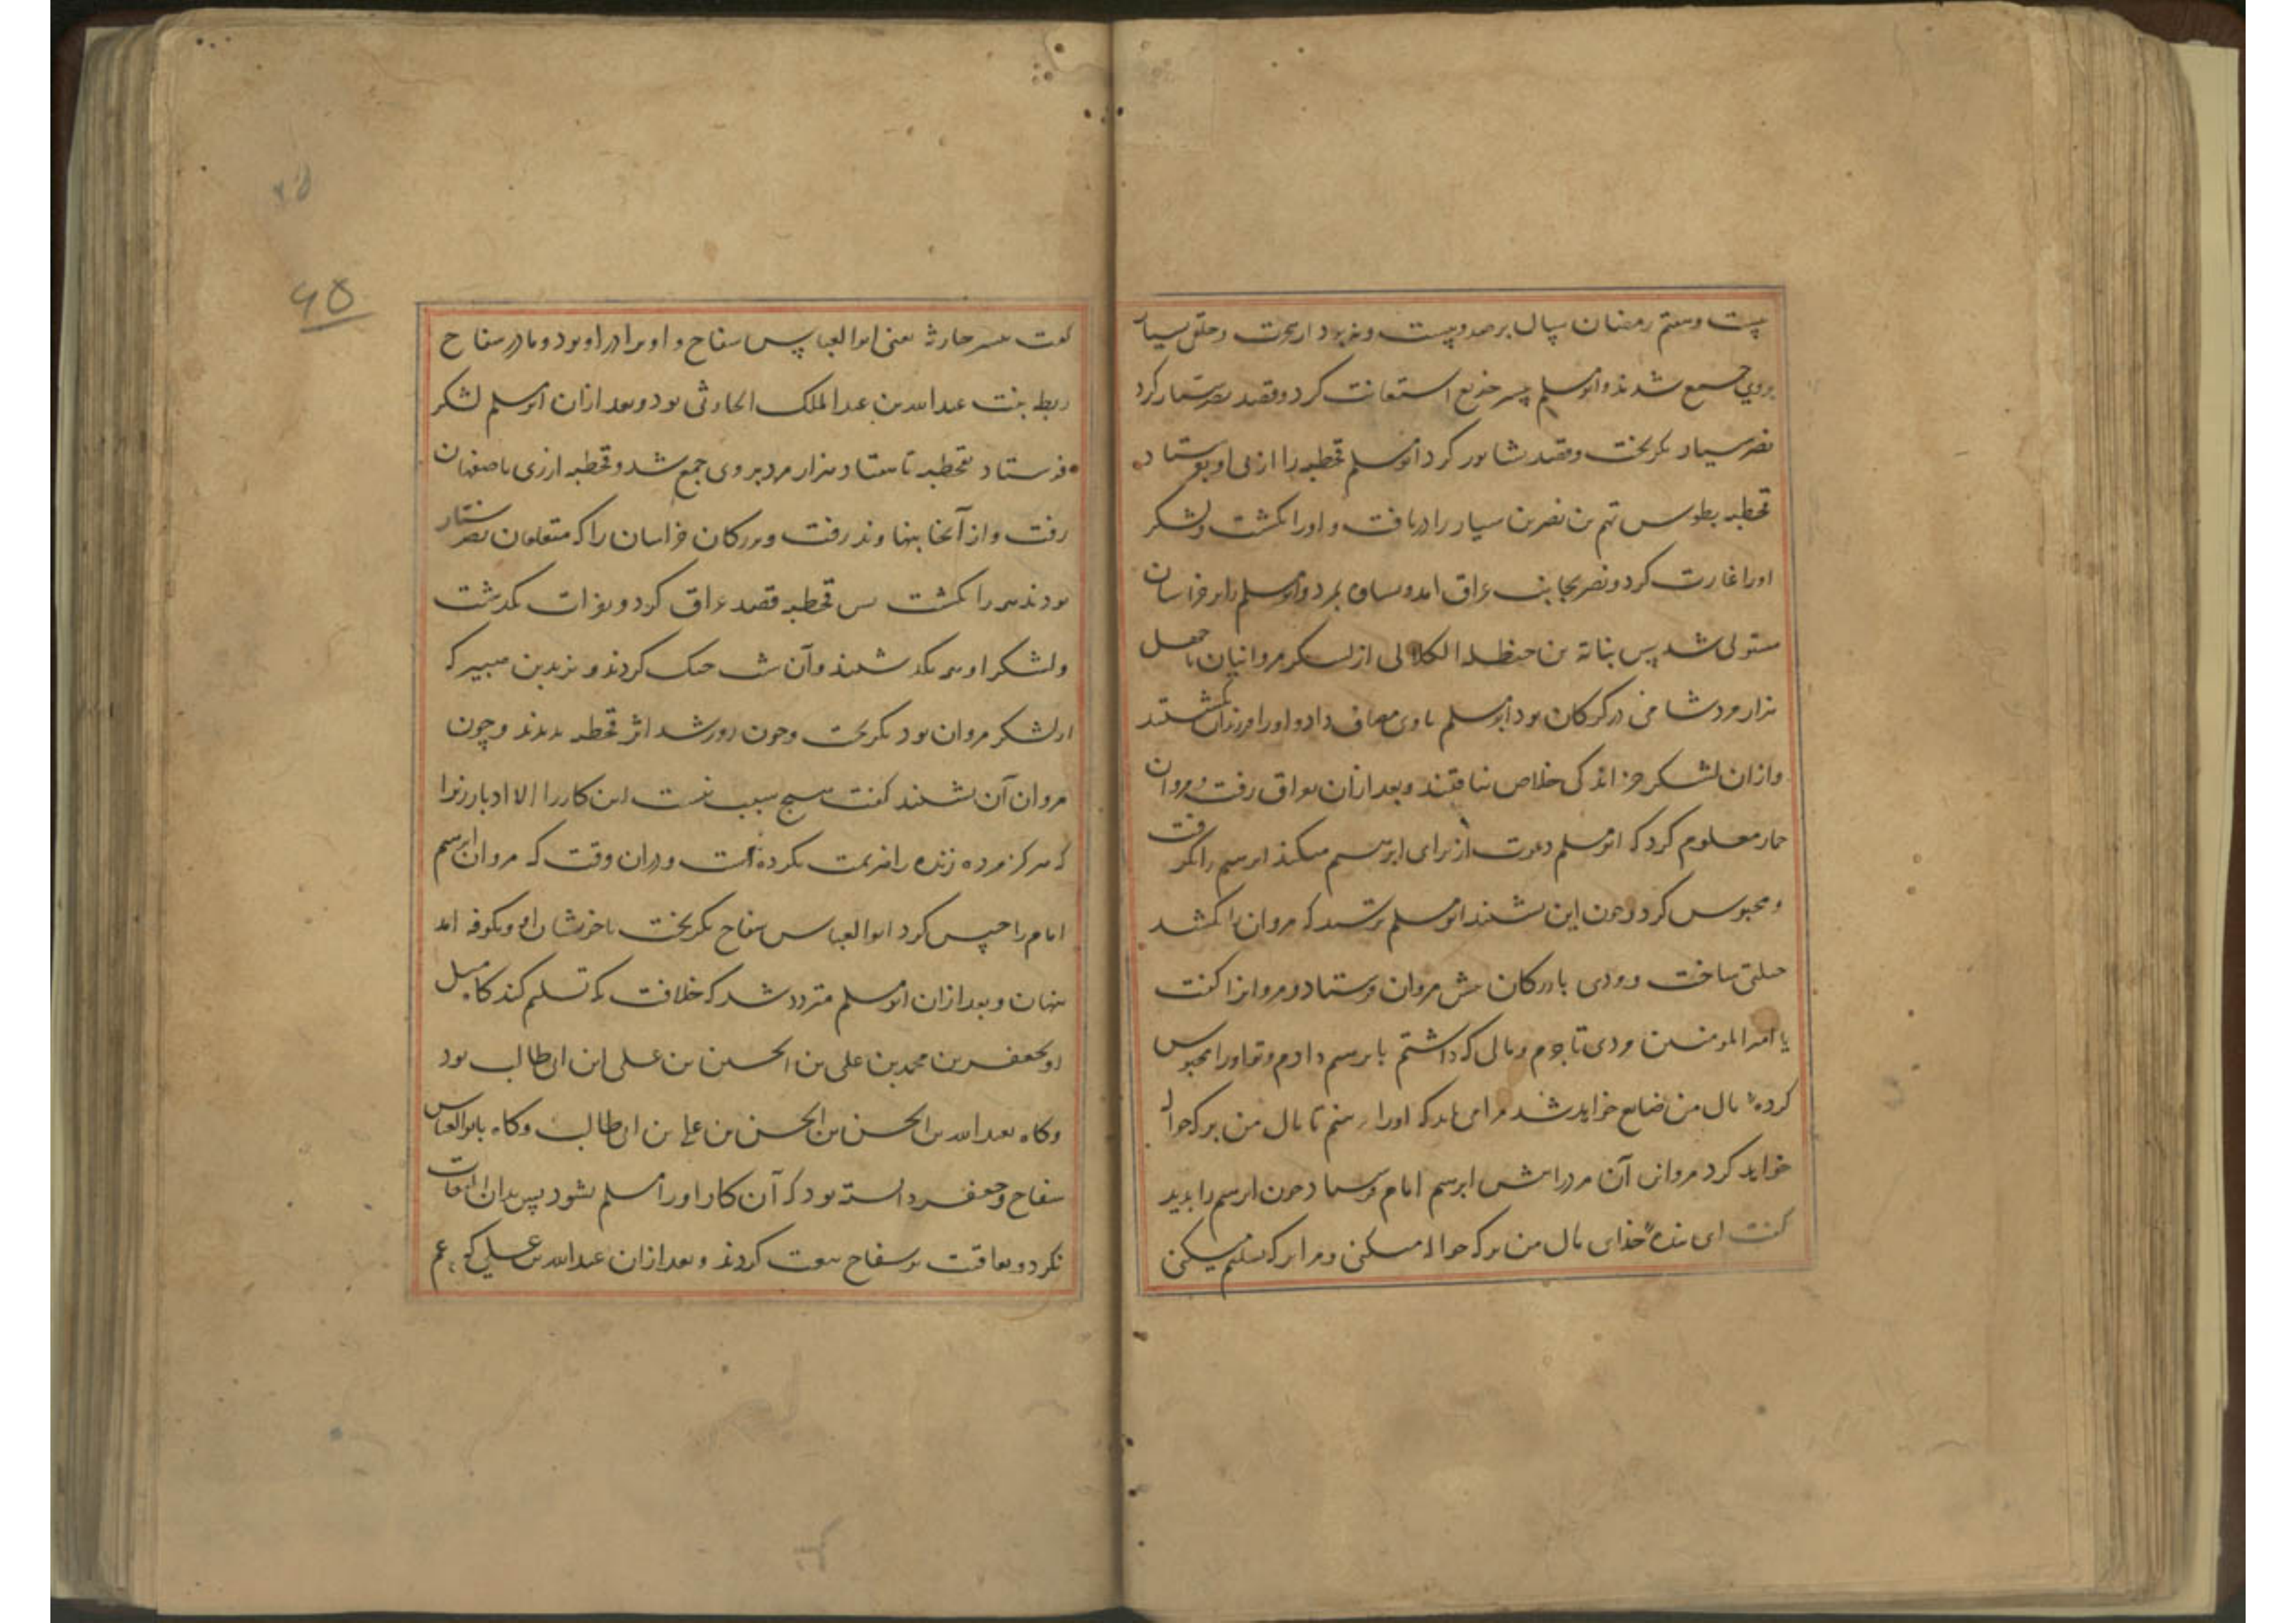 بیست و هفتم رمضان سال بر صد و بیست و نه بود از هجرت و خلقی بسیار
بروی جمع شدند و ابومسلم پسر خدیع استعانت کرد و قصد نصر سیار کرد
نصر سیار بگریخت و قصد نشابور کرد ابومسلم قحطبه را از پی او بفرستاد
قحطبه بطوس تمیم بن نصر بن سیار را دریافت و او را بکشت و لشکر
او را غارت کرد و نصر بجانب عراق آمد و بساوه بمرد و ابومسلم را بر خراسان
مستولی شد پس بناته بن حنظله الکلابی از لشکر مروانیان با چهل
هزار مرد شامی در کرکان بود ابومسلم با وی مصاف داد و او را بکشتند
و از آن لشکر جز اندکی خلاص نیافتند و بعد از آن بعراق رفت و مروان
حمار معلوم کرد که ابومسلم دعوت از برای ابرهیم میکند ابرهیم را بگرفت
و محبوس کرد و چون این بشنید ابومسلم بترسید که مروان را بکشد
حیلتی ساخت و مردی بازرکان پیش مروان فرستاد و مروانرا کفت
یا امیر المومنین مردی تاجرم و مال که داشتم بابرهیم دادم و تو او را محبوس
کردهٔ مال من ضایع خواهد شد مرا می باید که او را ببینم تا مال من بر که حواله
خواهد کرد مروان آن مرد را پیش ابرهیم امام فرستاد چون ابرهیم را بدید
کفت ای بندهٔ خدای مال من بر که حواله میکنی و مرا بر که تسلیم میکنی
کفت پسر حارثه یعنی ابو العباس سفاح و او برادر او بود و مادر سفاح
ریطه بنت عبد الله بن عبد الملک الحارثی بود و بعد از آن ابومسلم لشکر
فرستاد بقحطبه تا هفتاد هزار مرد بر وی جمع شد و قحطبه از ری باصفهان
رفت و از آنجا بنهاوند رفت و بزرکان خراسان را که متعلقان نصر سیار
بودند همه را بکشت پس قحطبه قصد عراق کرد و بفرات بگذشت
و لشکر او همه بگذشتند و آن شب جنک کردند و یزید بن هبیره که
از لشکر مروان بود بگریخت و چون روز شد اثر قحطبه ندیدند و چون
مروان آن بشنید کفت هیچ سبب نیست این کار را الا ادبار زیرا
که هرکز مرده زنده را هزیمت نکرده است و در آن وقت که مروان ابرهیم
امام را حبس کرد ابو العباس سفاح بگریخت با خویشان او و بکوفه آمد
پنهان و بعد از آن ابومسلم متردد شد که خلافت بکه تسلیم کند کاه میل
او بجعفر بن محمد بن علی بن الحسین بن علی ابن ابی طالب بود
و کاه بعبد الله بن الحسن بن الحسن بن علی بن ابی طالب و کاه بابو العباس
سفاح و جعفر دانسته بود که آن کار او را مسلم نشود پس بدان التفات
نکرد و بعاقبت بر سفاح بیعت کردند و بعد از آن عبد الله بن علی که عم
۶۵